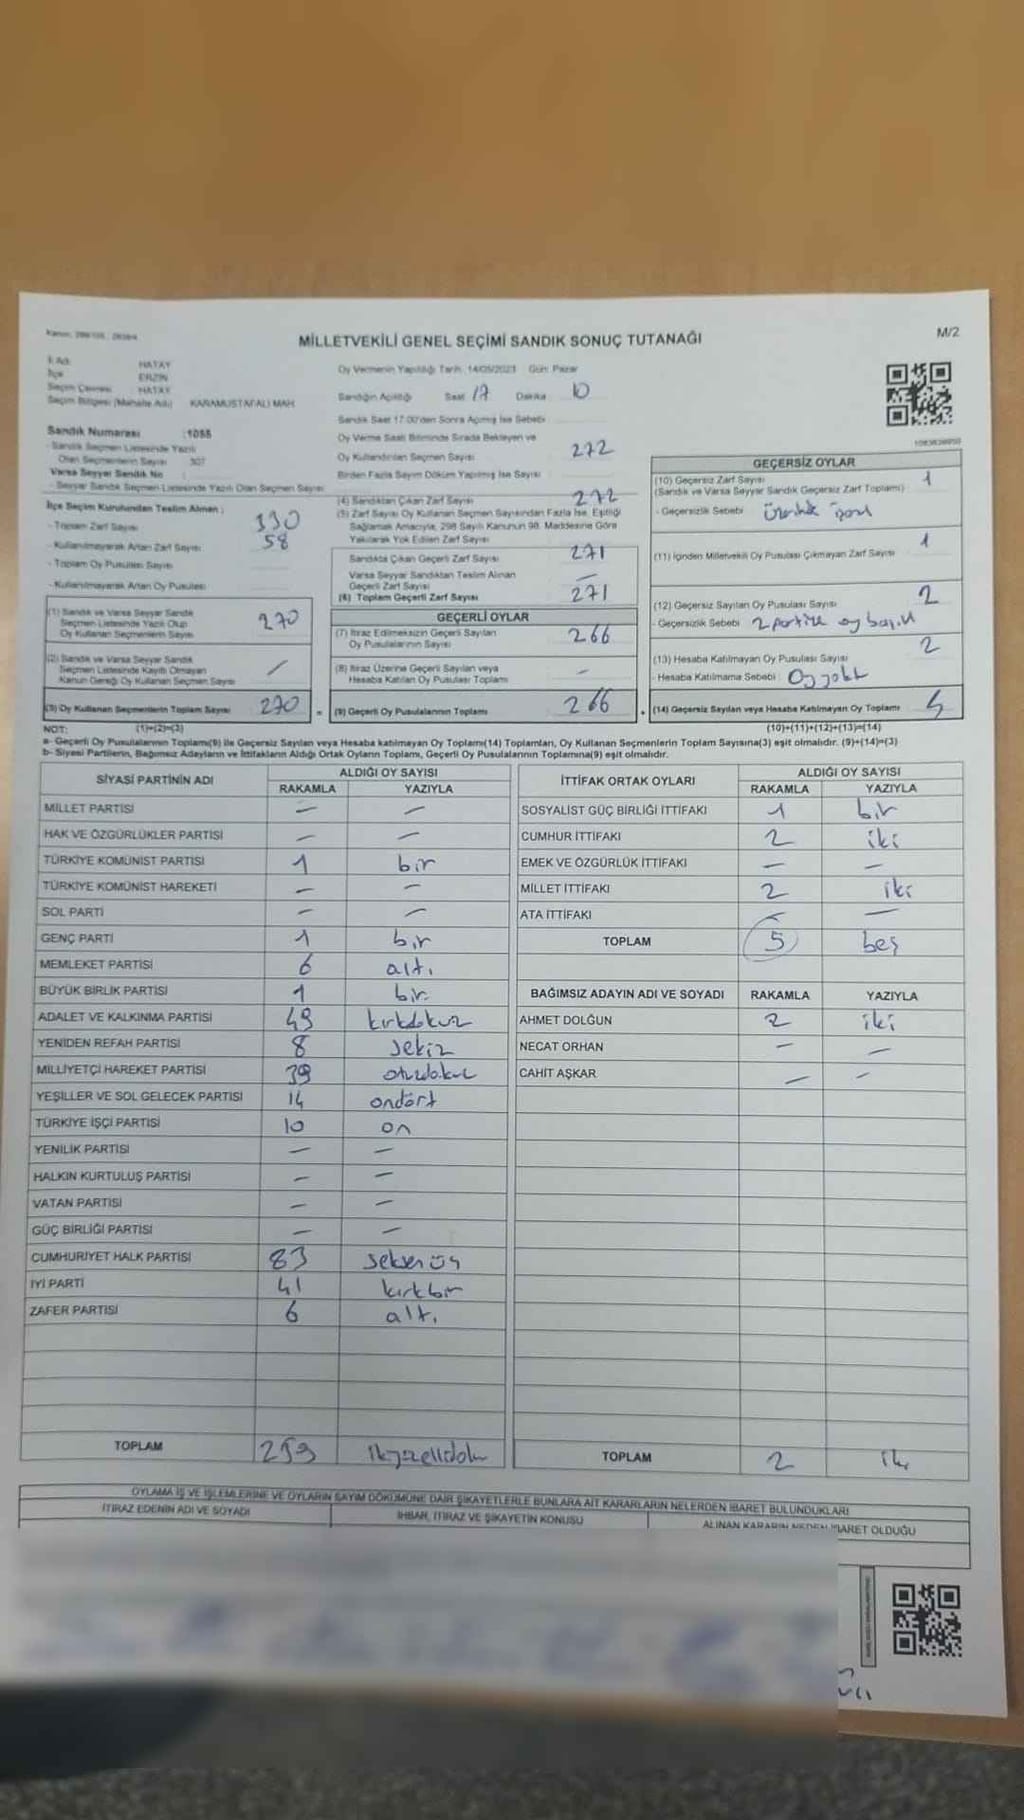 MİLLETVEKİLİ GENEL SEÇİMİ SANDIK SONUÇ TUTANAĞI
M/2
İl Adı HATAY
İlçe ERZİN
Seçim Çevresi HATAY
Seçim Bölgesi (Mahalle Adı) KARAMUSTAFALI MAH.
Sandık Numarası :1055
- Sandık Seçmen Listesinde Yazılı
Olan Seçmenlerin Sayısı 307
Varsa Seyyar Sandık No :
- Seyyar Sandık Seçmen Listesinde Yazılı Olan Seçmen Sayısı
İlçe Seçim Kurulundan Teslim Alınan ;
- Toplam Zarf Sayısı 330
- Kullanılmayarak Artan Zarf Sayısı 58
- Toplam Oy Pusulası Sayısı
- Kullanılmayarak Artan Oy Pusulası
(1) Sandık ve Varsa Seyyar Sandık
Seçmen Listesinde Yazılı Olup
Oy Kullanan Seçmenlerin Sayısı 270
(2) Sandık ve Varsa Seyyar Sandık
Seçmen Listesinde Kayıtlı Olmayan
Kanun Gereği Oy Kullanan Seçmen Sayısı /
(3) Oy Kullanan Seçmenlerin Toplam Sayısı 270
(1)+(2)=(3)
Oy Vermenin Yapıldığı Tarih: 14/05/2023 Gün: Pazar
Sandığın Açıldığı Saat 17 Dakika 10
Sandık Saat 17.00'den Sonra Açılmış İse Sebebi
Oy Verme Saati Bitiminde Sırada Bekleyen ve
Oy Kullandırılan Seçmen Sayısı 272
Birden Fazla Sayım Döküm Yapılmış İse Sayısı
(4) Sandıktan Çıkan Zarf Sayısı 272
(5) Zarf Sayısı Oy Kullanan Seçmen Sayısından Fazla İse, Eşitliği
Sağlamak Amacıyla, 298 Sayılı Kanunun 98. Maddesine Göre
Yakılarak Yok Edilen Zarf Sayısı
Sandıkta Çıkan Geçerli Zarf Sayısı 271
Varsa Seyyar Sandıktan Teslim Alınan
Geçerli Zarf Sayısı —
(6) Toplam Geçerli Zarf Sayısı 271
GEÇERLİ OYLAR
(7) İtiraz Edilmeksizin Geçerli Sayılan
Oy Pusulalarının Sayısı 266
(8) İtiraz Üzerine Geçerli Sayılan veya
Hesaba Katılan Oy Pusulası Toplamı —
(9) Geçerli Oy Pusulalarının Toplamı 266
GEÇERSİZ OYLAR
(10) Geçersiz Zarf Sayısı 1
(Sandık ve Varsa Seyyar Sandık Geçersiz Zarf Toplamı)
- Geçersizlik Sebebi
(11) İçinden Milletvekili Oy Pusulası Çıkmayan Zarf Sayısı 1
(12) Geçersiz Sayılan Oy Pusulası Sayısı 2
- Geçersizlik Sebebi 2 partiye oy basıldı
(13) Hesaba Katılmayan Oy Pusulası Sayısı 2
- Hesaba Katılmama Sebebi : Oy yok
(14) Geçersiz Sayılan veya Hesaba Katılmayan Oy Toplamı
(10)+(11)+(12)+(13)=(14)
NOT:
a- Geçerli Oy Pusulalarının Toplamı(9) ile Geçersiz Sayılan veya Hesaba katılmayan Oy Toplamı(14) Toplamları, Oy Kullanan Seçmenlerin Toplam Sayısına(3) eşit olmalıdır. (9)+(14)=(3)
b- Siyasi Partilerin, Bağımsız Adayların ve İttifakların Aldığı Ortak Oyların Toplamı, Geçerli Oy Pusulalarının Toplamına(9) eşit olmalıdır.
SİYASİ PARTİNİN ADI ALDIĞI OY SAYISI
RAKAMLA YAZIYLA
MİLLET PARTİSİ — —
HAK VE ÖZGÜRLÜKLER PARTİSİ — —
TÜRKİYE KOMÜNİST PARTİSİ 1 bir
TÜRKİYE KOMÜNİST HAREKETİ — —
SOL PARTİ — —
GENÇ PARTİ 1 bir
MEMLEKET PARTİSİ 6 altı
BÜYÜK BİRLİK PARTİSİ 1 bir
ADALET VE KALKINMA PARTİSİ 49 kırkdokuz
YENİDEN REFAH PARTİSİ 8 sekiz
MİLLİYETÇİ HAREKET PARTİSİ 39 otuzdokuz
YEŞİLLER VE SOL GELECEK PARTİSİ 14 ondört
TÜRKİYE İŞÇİ PARTİSİ 10 on
YENİLİK PARTİSİ — —
HALKIN KURTULUŞ PARTİSİ — —
VATAN PARTİSİ — —
GÜÇ BİRLİĞİ PARTİSİ — —
CUMHURİYET HALK PARTİSİ 83 seksenüç
İYİ PARTİ 41 kırkbir
ZAFER PARTİSİ 6 altı
TOPLAM 259 ikiyüzellidokuz
İTTİFAK ORTAK OYLARI ALDIĞI OY SAYISI
RAKAMLA YAZIYLA
SOSYALİST GÜÇ BİRLİĞİ İTTİFAKI 1 bir
CUMHUR İTTİFAKI 2 iki
EMEK VE ÖZGÜRLÜK İTTİFAKI — —
MİLLET İTTİFAKI 2 iki
ATA İTTİFAKI — —
TOPLAM 5 beş
BAĞIMSIZ ADAYIN ADI VE SOYADI RAKAMLA YAZIYLA
AHMET DOLĞUN 2 iki
NECAT ORHAN — —
CAHİT AŞKAR — —
TOPLAM 2 iki
OYLAMA İŞ VE İŞLEMLERİNE VE OYLARIN SAYIM DÖKÜMÜNE DAİR ŞİKAYETLERLE BUNLARA AİT KARARLARIN NELERDEN İBARET BULUNDUKLARI
İTİRAZ EDENİN ADI VE SOYADI İHBAR, İTİRAZ VE ŞİKAYETİN KONUSU ALINAN KARARIN NEDEN İBARET OLDUĞU